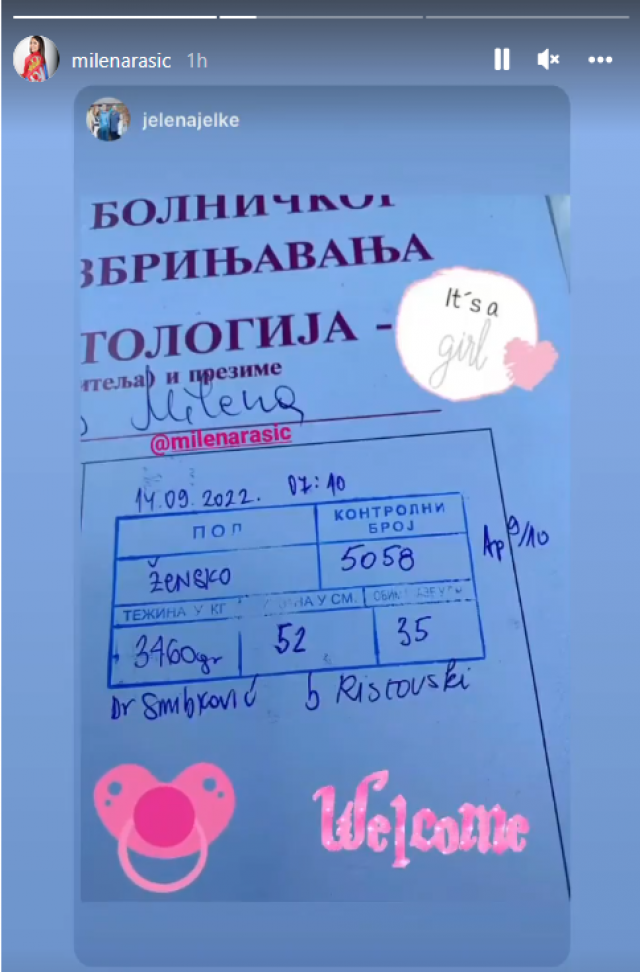 milenarasic 1h
jelenajelke
БОЛНИЧКОГ
ЗБРИЊАВАЊА
ТОЛОГИЈА -
It´s a
girl
итеља) и презиме
Milena
@milenarasic
14.09.2022. 07:10
ПОЛ
КОНТРОЛНИ
БРОЈ
žENSKO
5058
Ap 9/10
ТЕЖИНА У КГ
НА У СМ.
3460gr
52
35
Dr
b Ristovski
Welcome